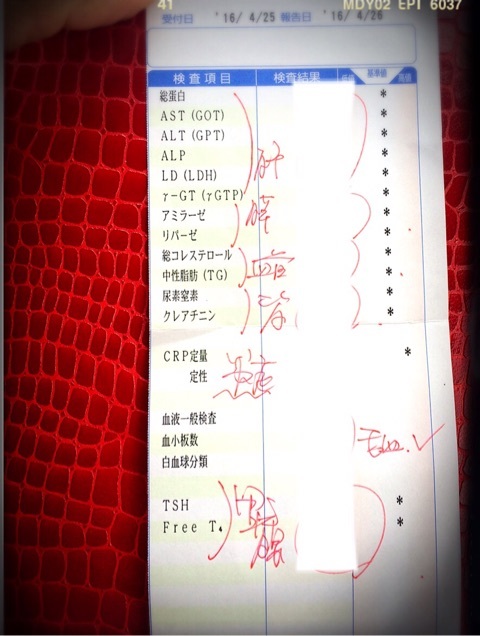 41 MDY02 EPI 6037
受付日 '16/ 4/25 報告日 '16/ 4/26
検査項目 検査結果 低値 基準値 高値
総蛋白 *
AST (GOT) *
ALT (GPT) *
ALP 肝 *
LD (LDH) *
γ-GT (γGTP) *
アミラーゼ 膵 *
リパーゼ *
総コレステロール *
中性脂肪 (TG) *
尿素窒素 *
クレアチニン 腎 *
CRP定量 *
定性
血液一般検査
血小板数
白血球分類
TSH *
Free T₄ *